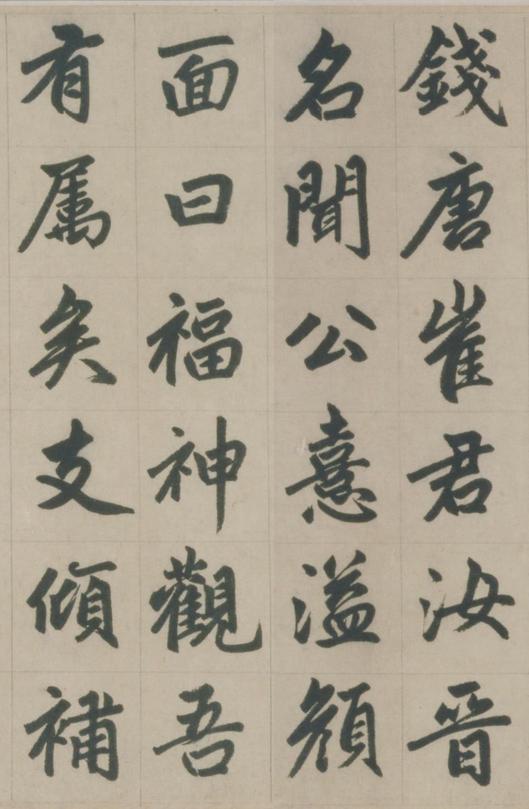 錢唐崔君汝晋
名聞公憙溢顔
面曰福神觀吾
有属矣支傾補